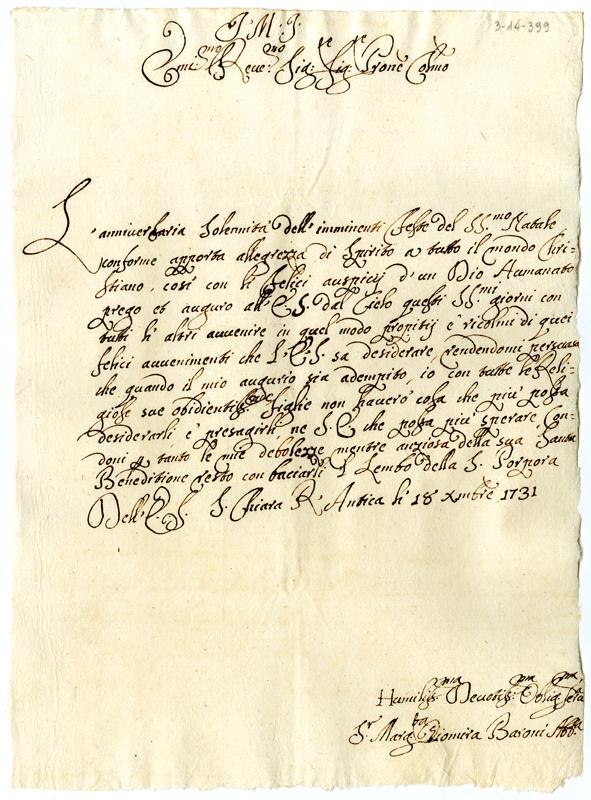 3-14-399
J. M. J.
Em:mo e Reve:mo Sig:re Sig:re Prone Colmo
L'anniversaria Solennità dell'imminenti Feste del SS.mo Natale
conforme apporta allegrezza di Spirito a tutto il mondo Chri=
stiano, così con li felici auspicij d'un Dio Humanato
prego et auguro all'E.S. dal Cielo questi SS.mi giorni con
tutti li altri avvenire in quel modo propitij e ricolmi di quei
felici avvenimenti che l'E.S. sa desiderare, rendendomi persuasa
che quando il mio augurio sia adempito, io con tutte le Reli=
giose sue obidientis:me figlie non haverò cosa che più possa
desiderarli e presagirli, ne S. E. che possa più sperare, Con=
doni p tanto le mie debolezze mentre anziosa della sua Santa
Beneditione resto con baciarli l Lembo della S. Porpora
Dell'E. S. S. Chiara R. Antica li 18 Xmbre 1731
Humilis:ma Devotis:ma Oblig:ma Serva
Sr Marg:ta Diomira Baroni Abb:a